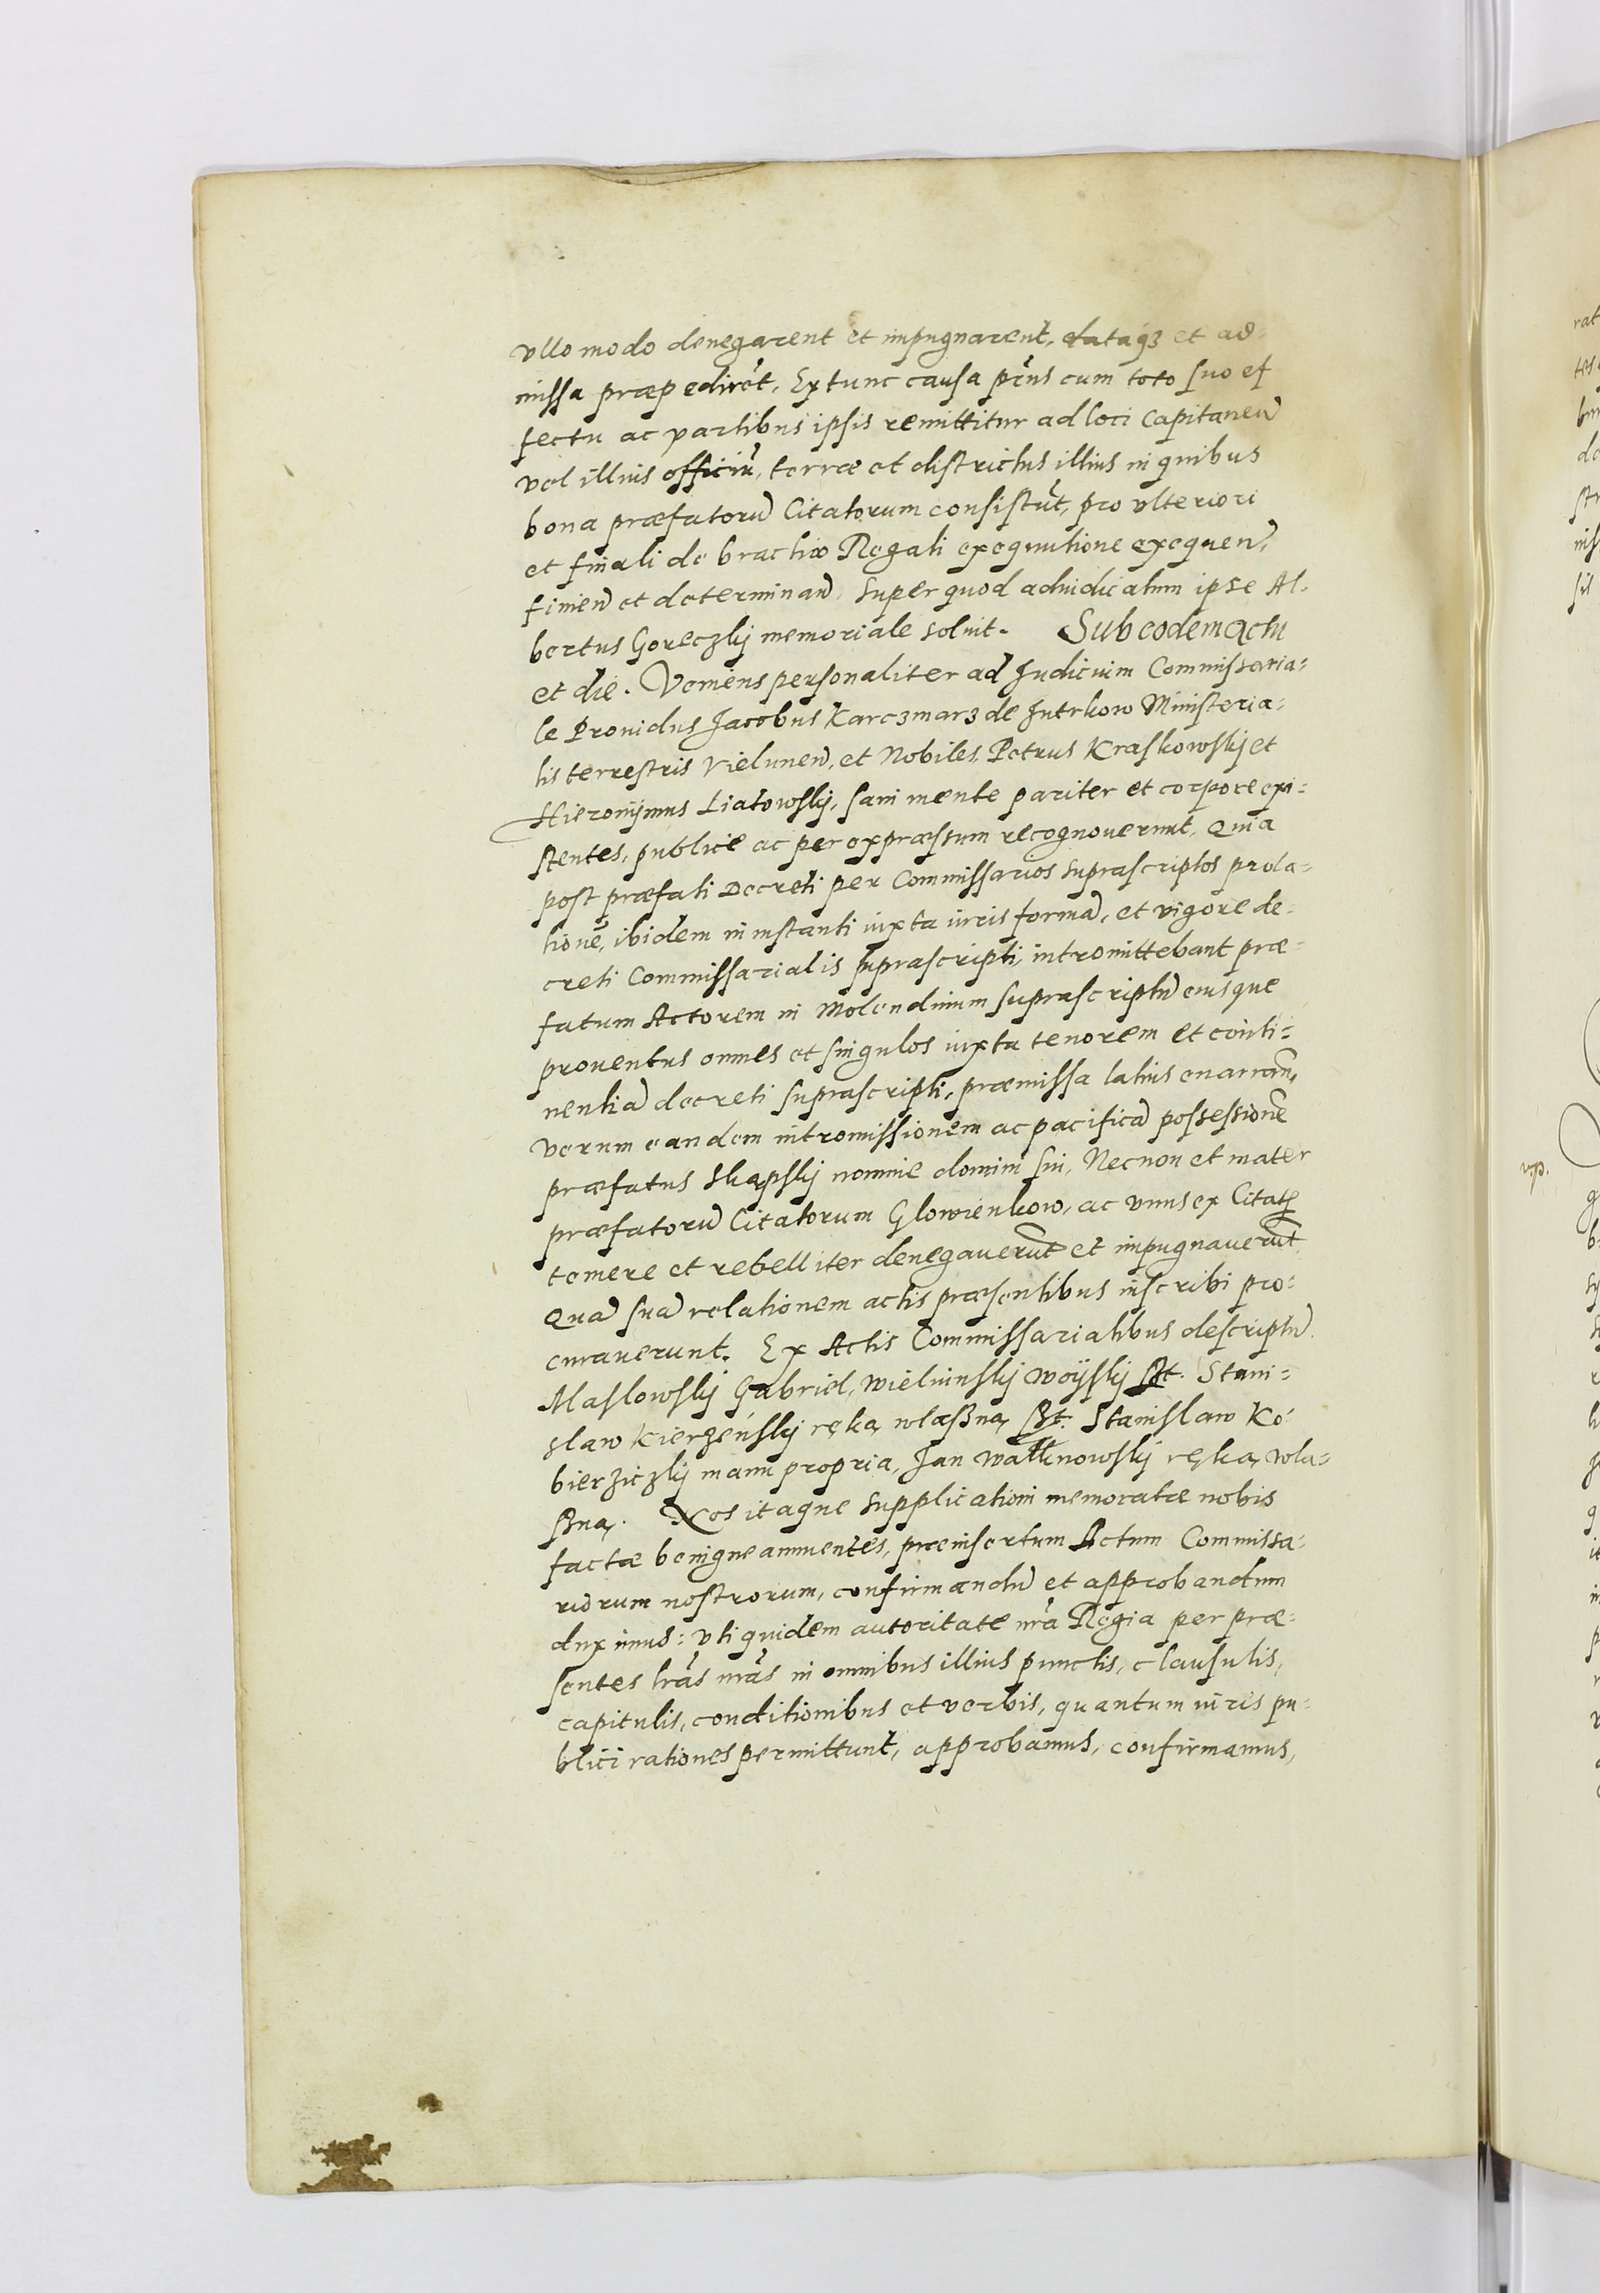 vllo modo denegarent et impugnarent, dataq3 et ad-
missa præpedirēt, Extunc causa pr̄ns cum toto suo ef
fectu ac partibus ipsis remittitur ad loci Capitaneū
vel illius officiū, terræ et districtus illius in quibus
bona præfatorū Citatorum consistūt, pro vlteriori
et finali de brachio Regali exequutione exequen̄,
finien̄ et determinan̄. Super quod adiudicatum ipse Al-
bertus Goreczkij memoriale soluit. Sub eodem actu
et die. Veniens personaliter ad Iudicium Commissaria-
le Prouidus Jacobus Karczmarz de Jutrkow Ministeria-
lis terrestris Vielunen̄, et Nobiles Petrus Kraskowskij et
Hieronÿmus Liatowskij, sani mente pariter et corpore exi-
stentes, publice ac per expræssum recognouerunt, Quia
post præfati Decreti per Commissarios suprascriptos prola-
tionē, ibidem in instanti iuxta iuris formā, et vigore de-
creti Commissarialis suprascripti, intromittebant præ-
fatum Actorem in Molendinum suprascriptū eiusque
prouentus omnes et singulos iuxta tenorem et conti-
nentiā decreti suprascripti, præmissa latius enarran̄,
verum eandem intromissionem ac pacificā possessionē
præfatus Skąpskij nomine domini sui, Necnon et mater
præfatorū Citatorum Glowienkow, ac vnus ex Citatꝭ
temere et rebelliter denegauerūt et impugnauerūt.
Quā suā relationem actis præsentibus inscribi pro-
curauerunt. Ex Actis Commissarialibus descriptū.
Maslowskij Gabriel, wieluinskij woÿskij sst. Stani-
slaw Kierzeńskij ręką własną sst. Stanislaw Ko-
bierziczkij manu propria, Jan Wałknowskij ręką wła-
sną. Nos itaque supplicationi memoratæ nobis
factæ benigne annuentes, præinsertum Actum Commissa-
riorum nostrorum, confirmandū et approbandum
duximus: vti quidem autoritate nr̄a Regia per præ-
sentes lr̄as nr̄as in omnibus illius punctis, clausulis,
capitulis, conditionibus et verbis, quantum iuris pu-
blici rationes permittunt, approbamus, confirmamus,